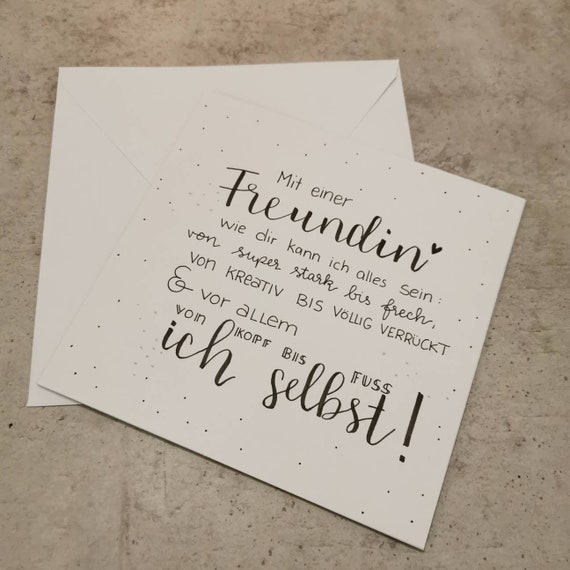 Mit einer
Freundin
wie dir kann ich alles sein:
von super stark bis frech,
VON KREATIV BIS VÖLLIG VERRÜCKT
& vor allem
VON KOPF BIS FUSS
ich selbst!